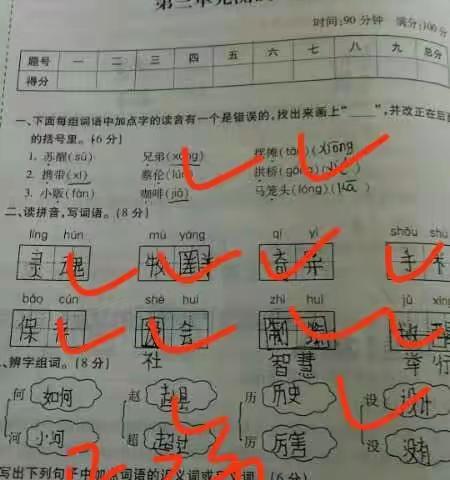 时间:90分钟 满分:100分
题号 一 二 三 四 五 六 七 八 九 总分
得分
一、下面每组词语中加点字的读音有一个是错误的,找出来画上“____”,并改正在后面
的括号里。(6分)
1. 苏醒(sū) 兄弟(xōng) 摆摊(tān)(xiōng
2. 携带(xī) 蔡伦(lún) 拱桥(gǒng)
3. 小贩(fàn) 咖啡(jiā) 马笼头(lóng)(kā)
二、读拼音,写词语。(8分)
líng hún mù yáng qí yì shǒu shù
灵魂 牧 奇异 手术
bǎo cún shè huì zhì huì jǔ xíng
保 会
社 智慧 举行
辨字组词。(8分)
何 如何 赵 赵县 历 历史 设 设计
河 小河 超 超过 厉 厉害 没 没有
写出下列句子中加点词语的近义词或 (6分)